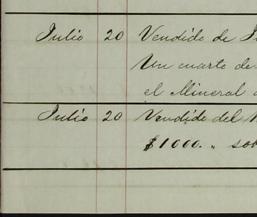 Julio 20 Vendido de
Un cuarto de
el Mineral
Julio 20 Vendido del
$1000.